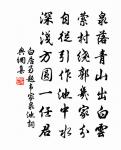 泉落青山出白雲
縈村繞郭幾家分
自從引作池中水
深淺方圓一任君
白居易題韋家泉池詞
典網集